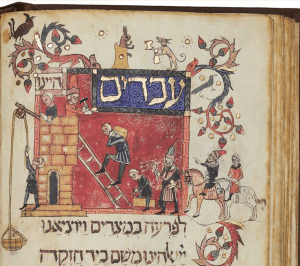 עבדים היינו
לפרעה במצרים ויוציאנו
יי אלהינו משם ביד חזקה